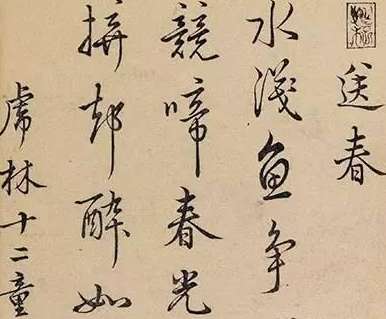 送春
水淺鱼争
競啼春光
拚却醉如
虎林十二童